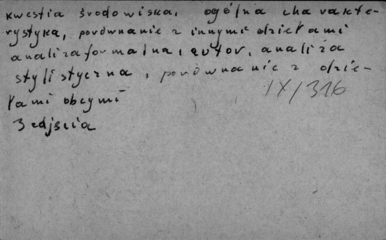 kwestia środowiska, ogólna charakte-
rystyka, porównanie z innymi dziełami
analiza formalna, autor, analiza
stylistyczna, porównanie z dzie-
łami obcymi
IX/316
3 zdjęcia